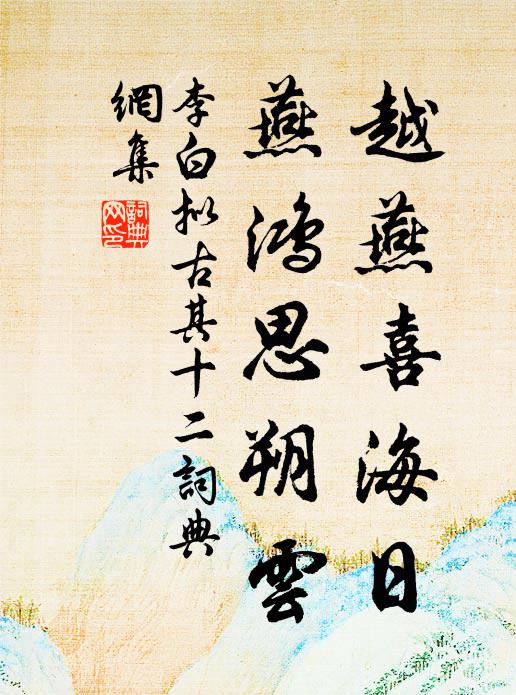 越燕喜海日
燕鴻思朔雲
李白拟古其十二詞典
網集
詞典
网印